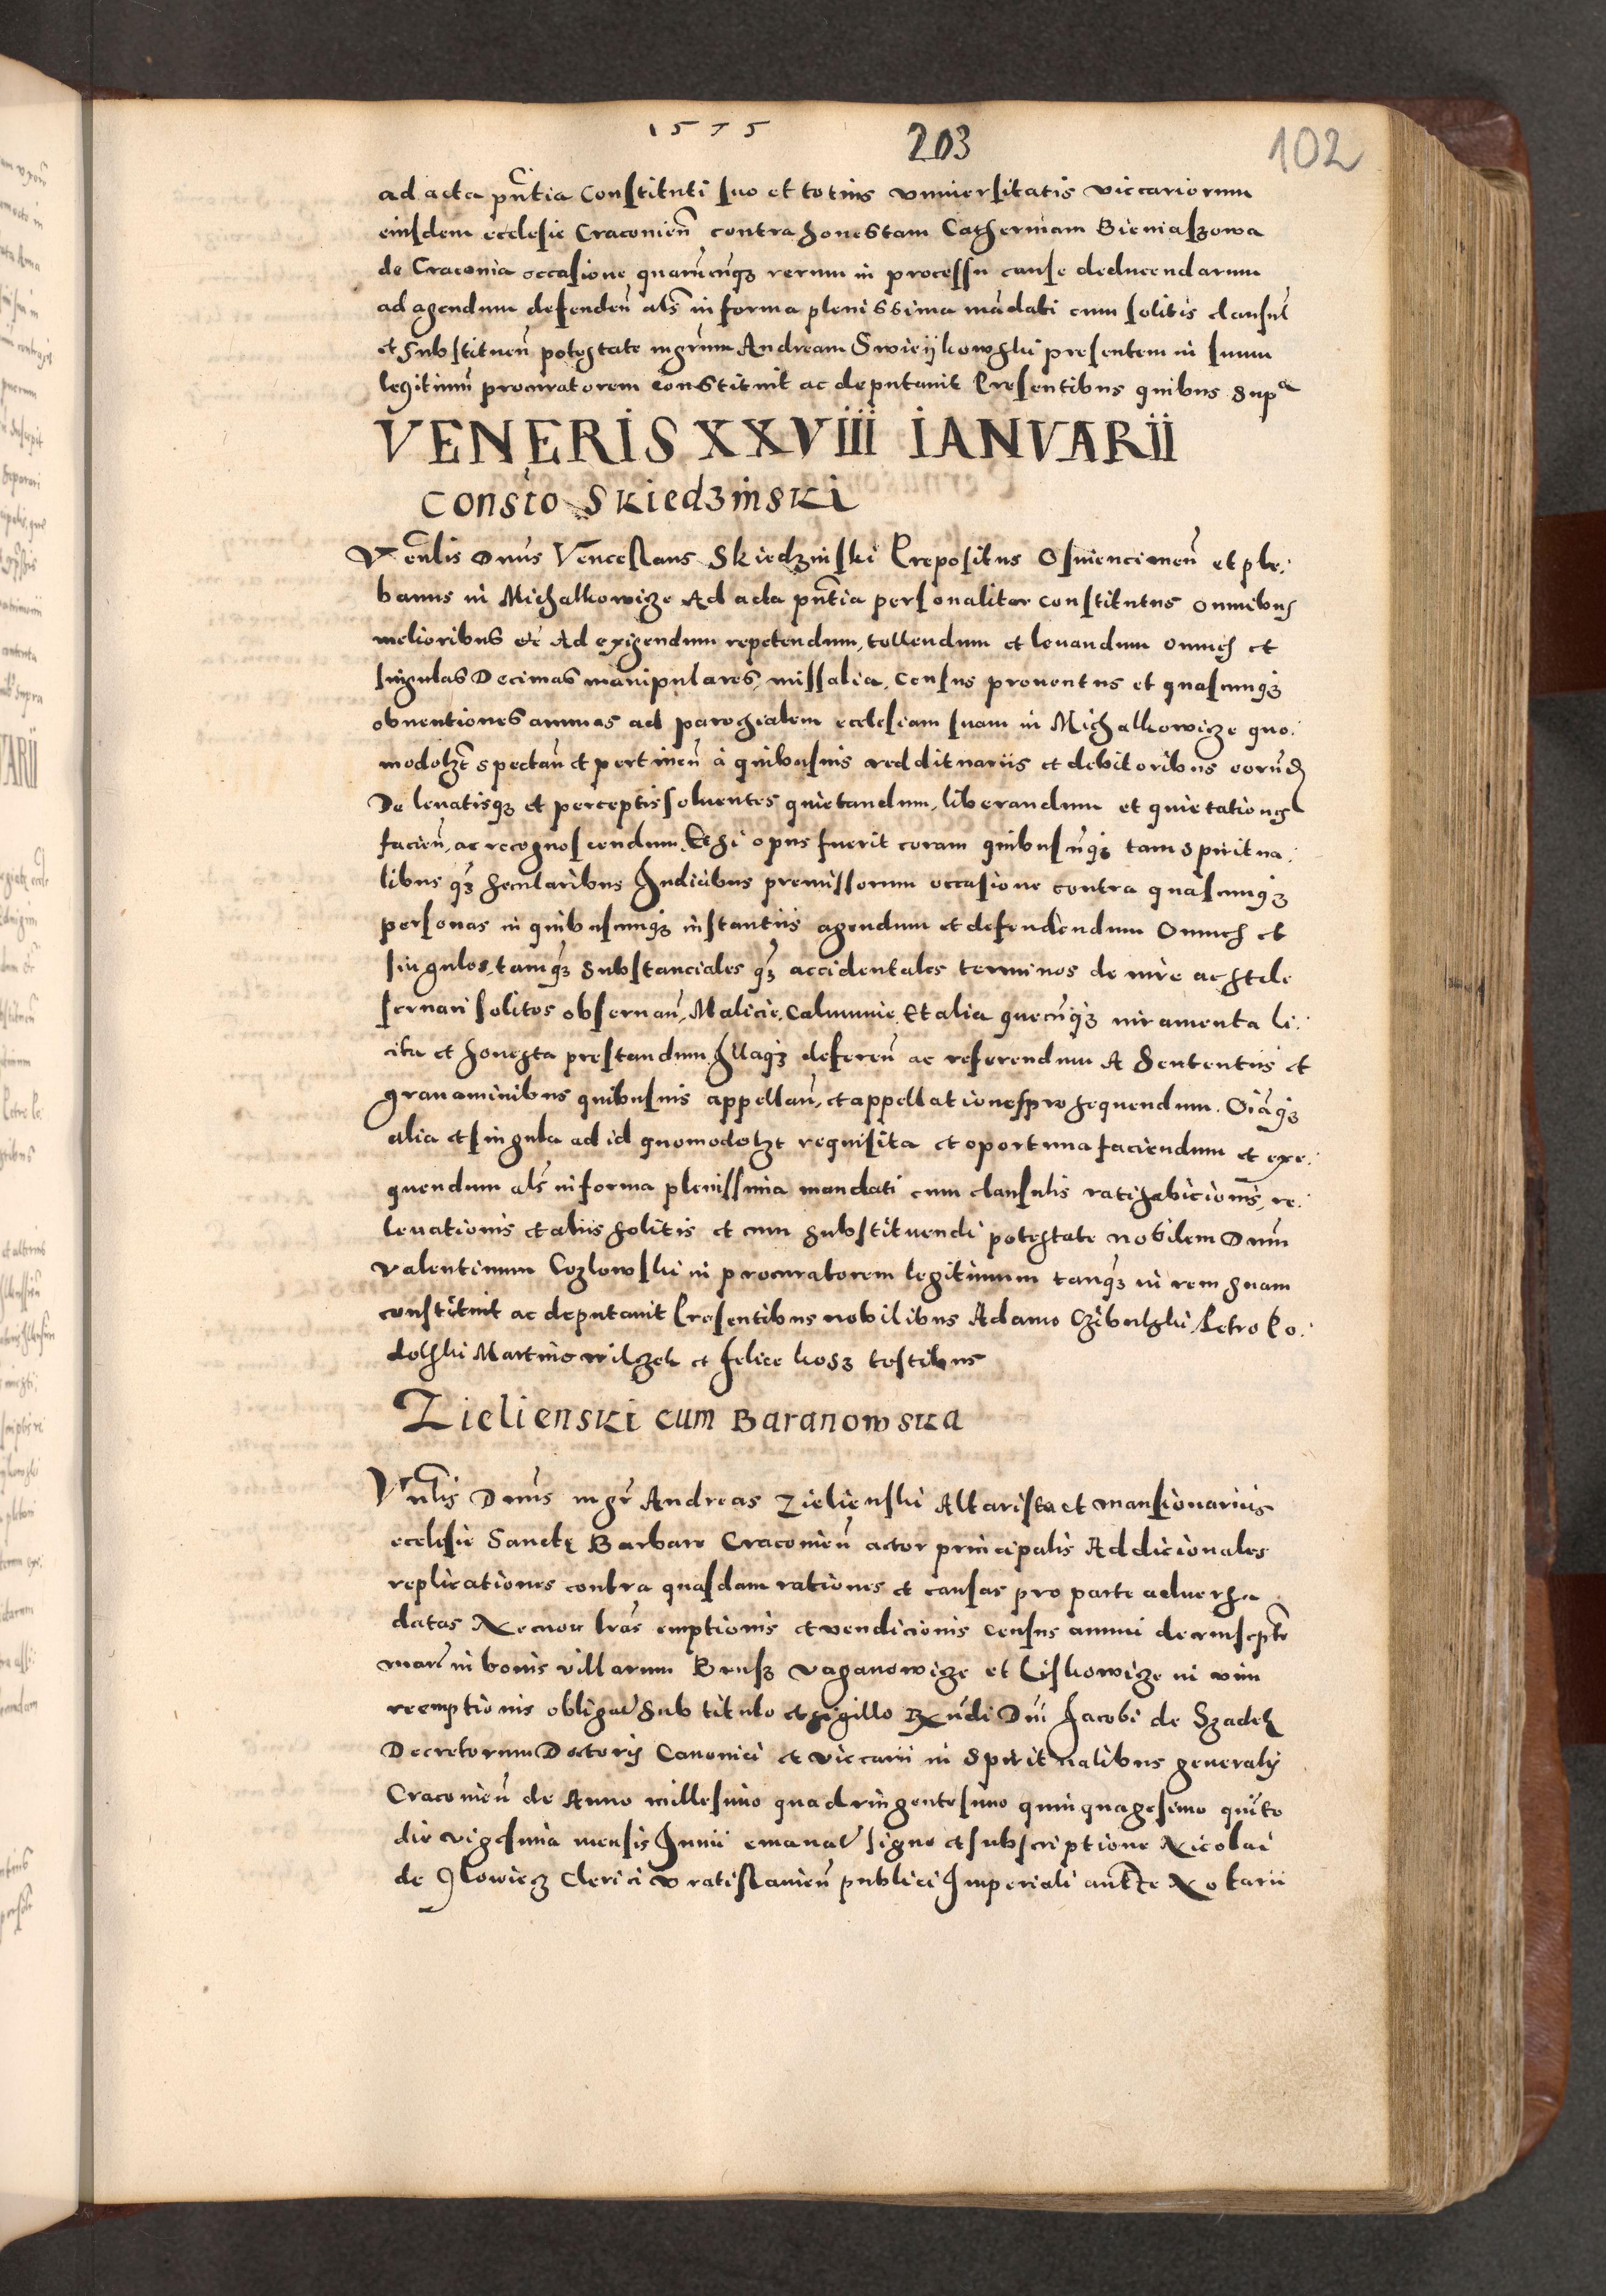 1575
203
102
ad acta pñtia Constituti suo et totius vniuersitatis viccariorum
eiusdem ecclesie Cracouień contra honestam Catherinam Bieniaszowa
de Cracouia occasione quarũcũqȝ rerum in processu cause deducendarum
ad agendum defendeñ als in forma plenissima mãdati cum solitis clausul
et Substitueñ potestate mgrum Andream Swieykowski presentem in suum
legitimũ procuratorem constituit ac deputauit Presentibus quibus supª
VENERIS XXVIII IANVARII
Constő Skiedzinski
Veñlis Dnus Venceslaus Skiedzinski Prepositus Osuiencimeñ et ple:
banus in Michalkowize Ad acta pñtia personaliter constitutus omnibus
melioribus etc Ad exigendum repetendum, tollendum et leuandum omnes et
singulas Decimas manipulares, missalia, Census prouentus et quascunqȝ
obuentiones annuas ad parochialem ecclesiam suam in Michalkowize quo:
modolȝt spectañ et pertineñ à quibusuis reddituariis et debitoribus eorũd
De leuatisqȝ et perceptis soluentes quietandum, liberandum et quietationes
facieñ, ac recognoscendum, Et si opus fuerit coram quibuscũqȝ tam spiritua:
libus qȝ secularibus Iudicibus premissorum occasione contra quascunqȝ
personas in quibuscunqȝ instantiis agendum et defendendum Omnes et
singulos, tamqȝ substanciales qȝ accidentales terminos de iure ac stilo
seruari solitos obseruañ, Malicie, Calumnie, Et alia quecũqȝ iuramenta li:
cita et honesta prestandum Illaqȝ defereñ ac referendum A Sententiis et
grauaminibus quibusuis appellañ, et appellationes prosequendum. Oiãqȝ
alia et singula ad id quomodolȝt requisita et oportuna faciendum et exe:
quendum als in forma plenissima mandati cum clausulis ratihabicionis, re:
leuationis et aliis solitis et cum substituendi potestate nobilem Dnum
Valentinum Cozlowski in procuratorem legitimum tanqȝ in rem suam
constituit ac deputauit Presentibus nobilibus Adamo Czibulski, Petro Po:
dolski Martino Wilzek et Felice kosz testibus
Zielienski cum Baranowska
Vnlis Dnus mgr Andreas Zielienski Altarista et mansionarius
ecclesie Sanctę Barbare Cracouieñ actor principalis Addicionales
replicationes contra quasdam rationes et causas pro parte aduersa
datas Necnon lras emptionis et vendicionis census annui decem septem
marć in bonis villarum Brusz Vaganowize et Liskowize in vim
reemptionis obligat Sub titulo et sigillo Rxndi Dni Iacobi de Szadek
Decretorum Doctoris Canonici et viccarii in Spiritualibus generalis
Cracouieñ de Anno millesimo quadringentesimo quinquagesimo quĩto
die vigesima mensis Iunii emanat signo et subscriptione Nicolai
de Ilowiecz Clerici Vratislauieñ publici Imperiali auttte Notarii